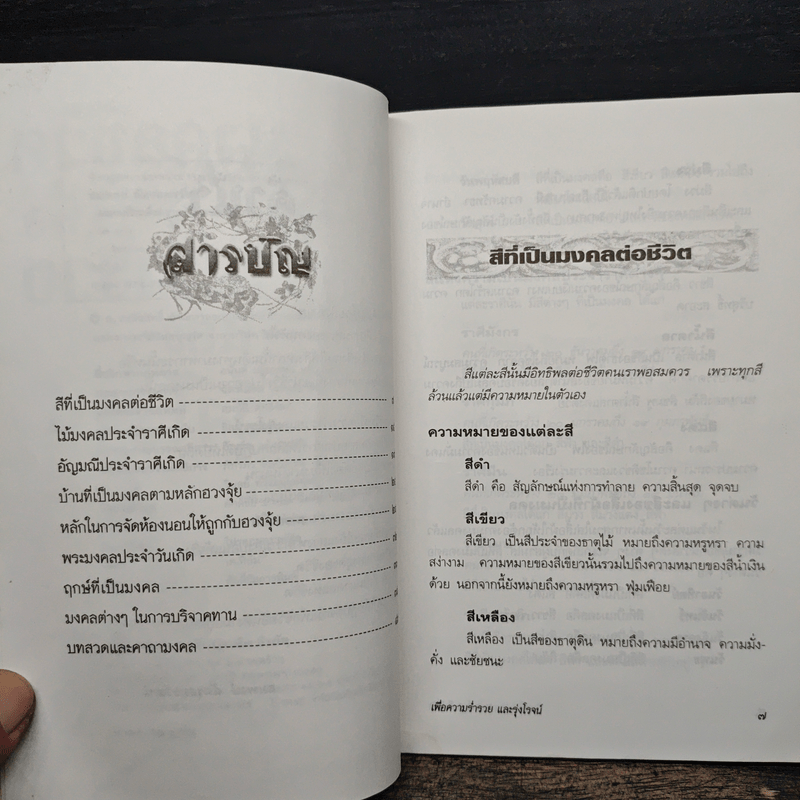 สารบัญ
สีที่เป็นมงคลต่อชีวิต
ไม้มงคลประจำราศีเกิด
อัญมณีประจำราศีเกิด
บ้านที่เป็นมงคลตามหลักฮวงจุ้ย
หลักในการจัดห้องนอนให้ถูกกับฮวงจุ้ย
พระมงคลประจำวันเกิด
ฤกษ์ที่เป็นมงคล
มงคลต่างๆ ในการบริจาคทาน
บทสวดและคาถามงคล
สีที่เป็นมงคลต่อชีวิต
สีแต่ละสีนั้นมีอิทธิพลต่อชีวิตคนเราพอสมควร เพราะทุกสี
ล้วนแล้วแต่มีความหมายในตัวเอง
ความหมายของแต่ละสี
สีดำ
สีดำ คือ สัญลักษณ์แห่งการทำลาย ความสิ้นสุด จุดจบ
สีเขียว
สีเขียว เป็นสีประจำของธาตุไม้ หมายถึงความหรูหรา ความ
สง่างาม ความหมายของสีเขียวนั้นรวมไปถึงความหมายของสีน้ำเงิน
ด้วย นอกจากนี้ยังหมายถึงความหรูหรา ฟุ่มเฟือย
สีเหลือง
สีเหลือง เป็นสีของธาตุดิน หมายถึงความมีอำนาจ ความมั่ง-
คั่ง และชัยชนะ
เพื่อความร่ำรวย และรุ่งโรจน์
๗